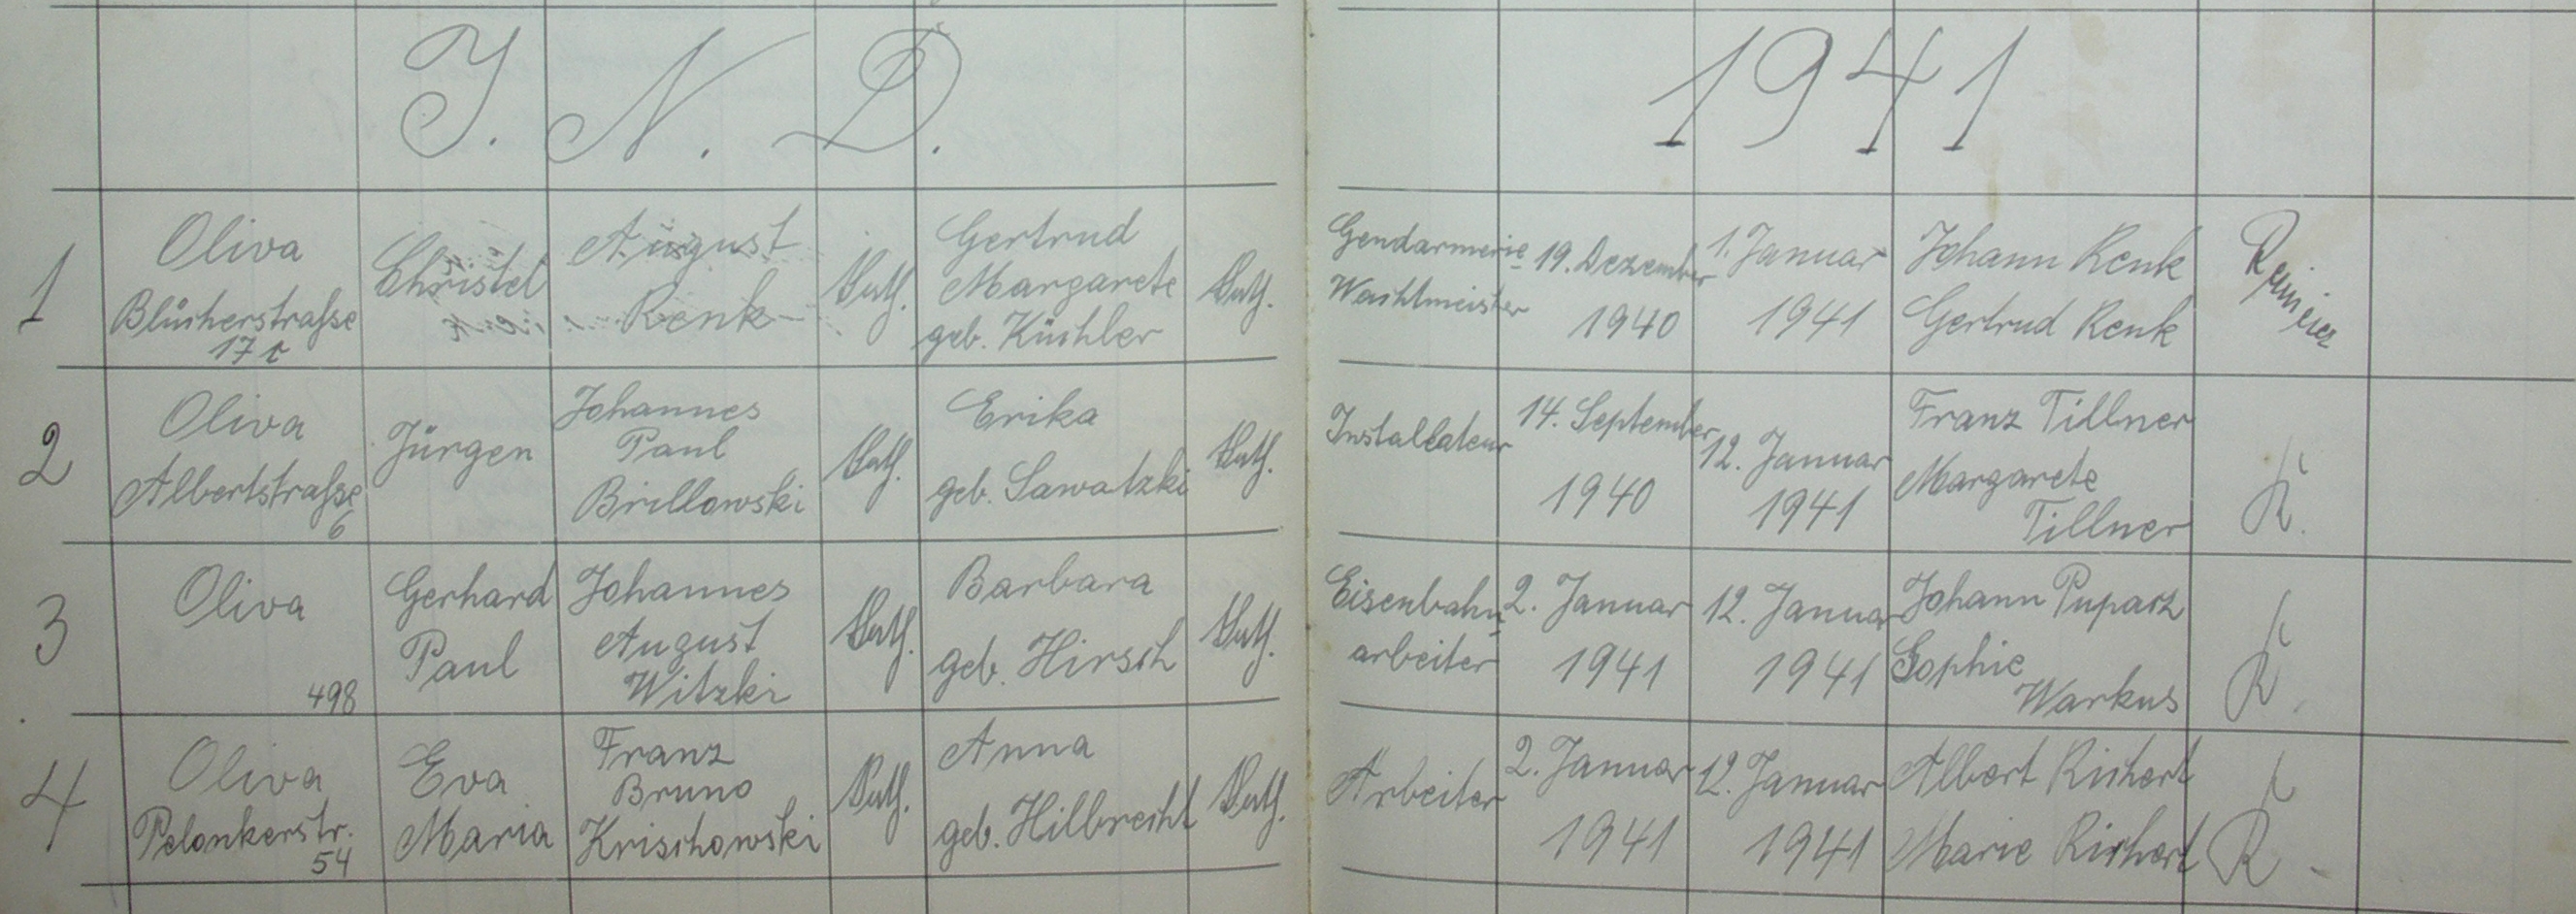 J. N. D. 1941
1
Oliva
Blücherstraße
17 c
Christel
August
Renk
kath.
Gertrud
Margarete
geb. Küchler
kath.
Gendarmerie-
Wachtmeister
19. Dezember
1940
1. Januar
1941
Johann Renk
Gertrud Renk
2
Oliva
Albertstraße
6
Jürgen
Johannes
Paul
Brillowski
kath.
Erika
geb. Sawatzki
kath.
Installateur
14. September
1940
12. Januar
1941
Franz Tillner
Margarete
Tillner
R.
3
Oliva
498
Gerhard
Paul
Johannes
August
Witzki
kath.
Barbara
geb. Hirsch
kath.
Eisenbahn-
arbeiter
2. Januar
1941
12. Januar
1941
Johann Puparz
Sophie
Warkus
R.
4
Oliva
Pelonkerstr.
54
Eva
Maria
Franz
Bruno
Krischowski
kath.
Anna
geb. Hilbrecht
kath.
Arbeiter
2. Januar
1941
12. Januar
1941
Albert Richert
Marie Richert
R.